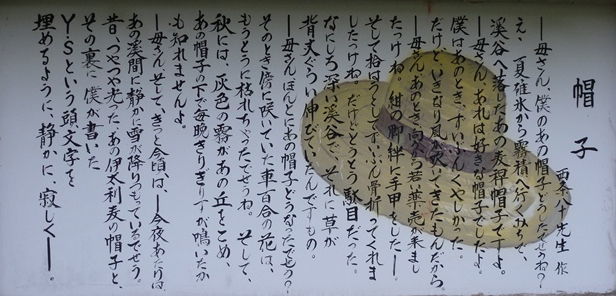 帽子
西条八十先生作
―母さん、僕のあの帽子どうしたでせうね?
え、夏碓氷から霧積へ行くみちで、
渓谷へ落したあの麦稈帽子ですよ。
―母さん、あれは好きな帽子でしたよ。
僕はあのとき、ずいぶんくやしかった。
だけど、いきなり風が吹いてきたもんだから。
―母さん、あのとき向から若い薬売が来まし
たっけね。紺の脚絆に手甲をした―。
そして拾はうとしてずいぶん骨折ってくれま
したっけね。だけどとうとう駄目だった。
なにしろ深い渓谷で、それに草が
背丈ぐらい伸びていたんですもの。
―母さんほんとにあの帽子どうなったでせう?
そのとき傍に咲いていた車百合の花は、
もうとうに枯れちゃったでせうね。そして、
秋には、灰色の霧があの丘をこめ、
あの帽子の下で毎晩きりぎりすが鳴いたか
も知れませんよ。
―母さんそして、きっと今頃は、―今夜あたりは
あの渓間に静かに雪が降りつもっているでせう。
昔、つやつや光ったあの伊太利麦の帽子と、
その裏に僕が書いた
YSという頭文字を
埋めるように、静かに、寂しく―。